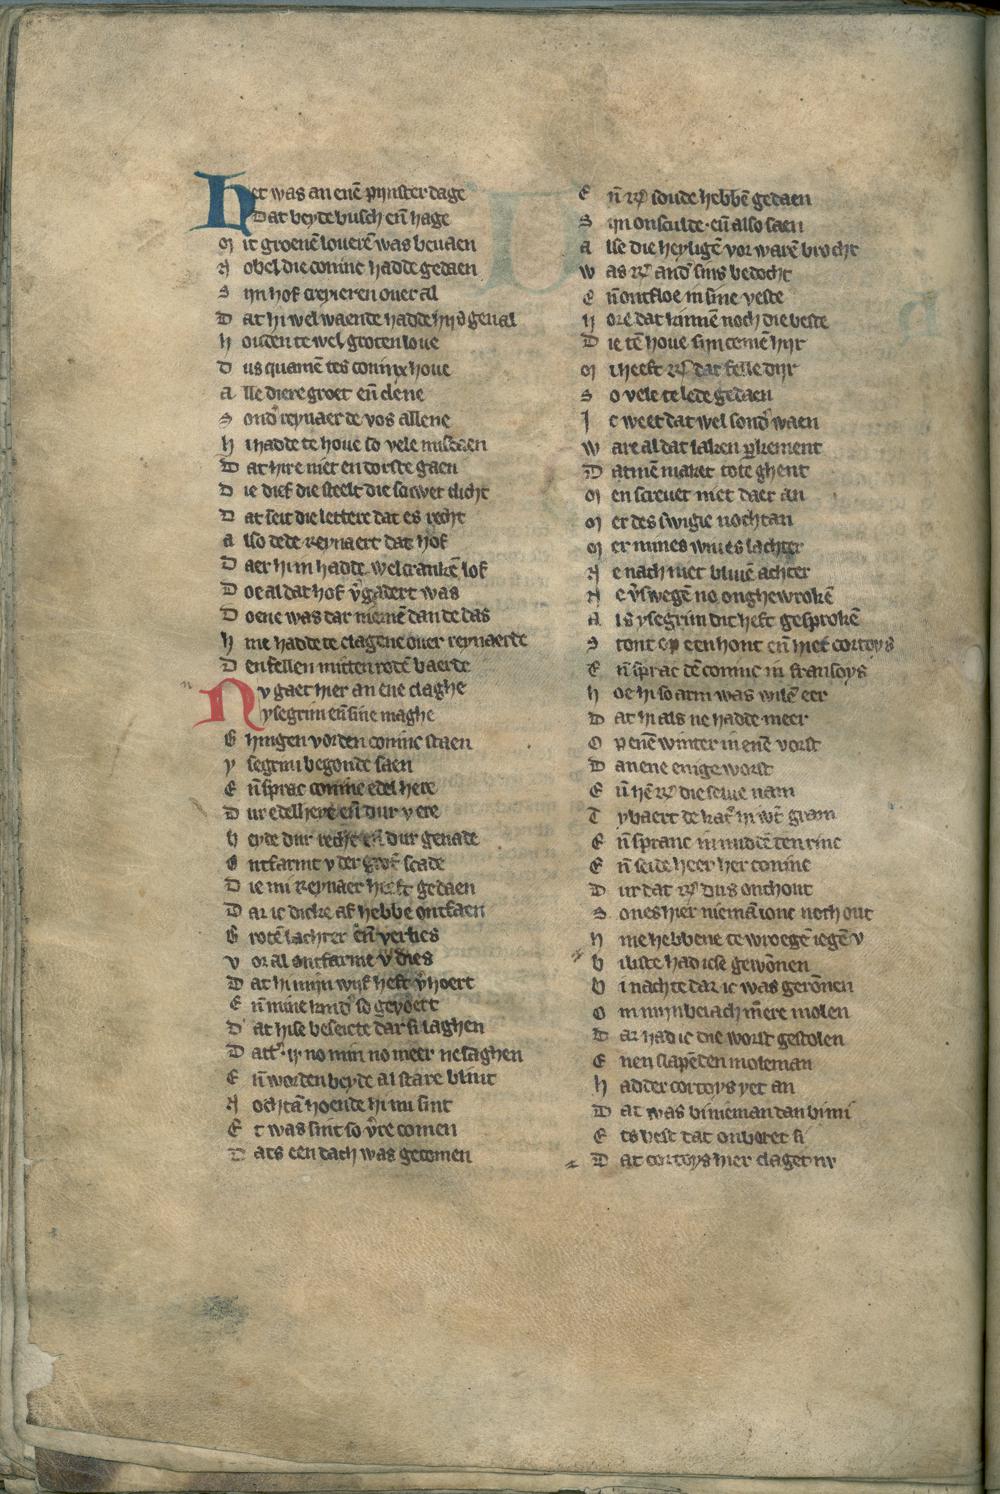 Het was an enē pijnster dage
Dat beyde busch en̄ hage
Mit groenē louerē was beuaen
Nobel die coninc hadde gedaen
Sijn hof creyieren ouer al
Dat hi wel waende hadde hijs geual
Houden te wel groten loue
Dus quamē tes coninx houe
Alle diere groet en̄ clene
Sond' reynaer de vos allene
Hi hadde te houe so vele misdaen
Dat hire niet en dorste gaen
Die dief die steelt die scuwet dicht
Dat seit die lettere dat es recht
Also dede reynaert dat hof
Daer hi in hadde wel crankē lof
Doe al dat hof v'gadert was
Doene was dar niemē dan de das
Hine hadde te clagene ouer reynaerde
Den fellen mitten rodē baerde
Nv gaet hier an ene claghe
ysegrim en̄ sine maghe
Ghingen vor den coninc staen
ysegrim begonde saen
En̄ sprac coninc edel here
Dur edelhere en̄ dur v ere
Beyde dur recht en̄ dur genade
Ontfarmt v der grot' scade
Die mi reynaer heeft gedaen
Dar ic dicke af hebbe ontfaen
Grotē lachter en̄ verlies
Vor al ontfarme v dies
Dat hi mijn wijf heft v'hoert
En̄ mine kind' so gevoert
Dat hise beseicte dar si laghen
Datt'. ij. no min no meer ne saghen
En̄ worden beyde al stare blint
Nochtā hoende hi mi sint
Et was sint so v're comen
Dats een dach was genomen
En̄ R' soude hebbē gedaen
Sijn onsculde. en̄ also saen
Alse die heyligē vor warē brocht
Was R' and' sins bedocht
En̄ ontfloe in sine veste
Hore dat kinnē noch die beste
Die tē houe sijn comē hijr
Mi heeft R' dat felle dijr
So vele te lede gedaen
Ic weet dat wel sond' waen
Ware al dat laken p̄kement
Datmē maket tote ghent
Men screuet niet daer an
Mer des swigic nochtan
Mer mines wiues lachter
Ne nach niet bliuē achter
Ne v'swegē no onghewrokē
Als ysegrim dit heft gesprokē
Stont op een hont en̄ hiet cortoys
En̄ sprac dē coninc in fransoys
Hoe hi so arm was wilē eer
Dat hi als ne hadde meer
Op enē winter in enē vorst
Dan ene enige worst
En̄ hē R' die selue nam
Tybaert de kat' wt gram
En̄ spranc in middē ten rinc
En̄ seide heer her coninc
Dur dat R' dus onthout
So nes hier niemā ionc noch out
Hine hebbene te wroegē iegē v
Biste had icse gewōnen
Bi nachte dar ic was gerōnen
Om mijn beiach in ere molen
Dar had ic die worst gestolen
Enen slapēden moleman
Hadder cortoys yet an
Dat was bi nieman dan bi mi
Ets best dat onboret si
Dat cortoys hier claget nv